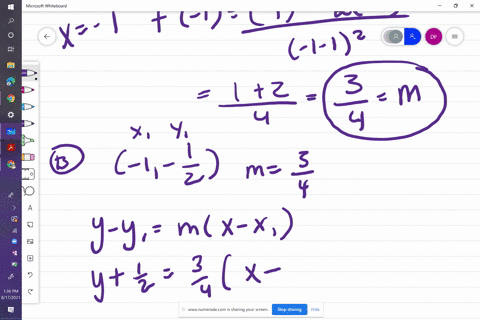 Microsoft Whiteboard
x = -1 f(-1) =
(-1-1)²
= 1+2/4 = 3/4 = m
x₁ y₁
B (-1, -1/2) m = 3/4
y - y₁ = m(x - x₁)
y + 1/2 = 3/4 ( x -
DP
A
1:36 PM
8/17/2021
www.numerade.com is sharing your screen. Stop sharing Hide